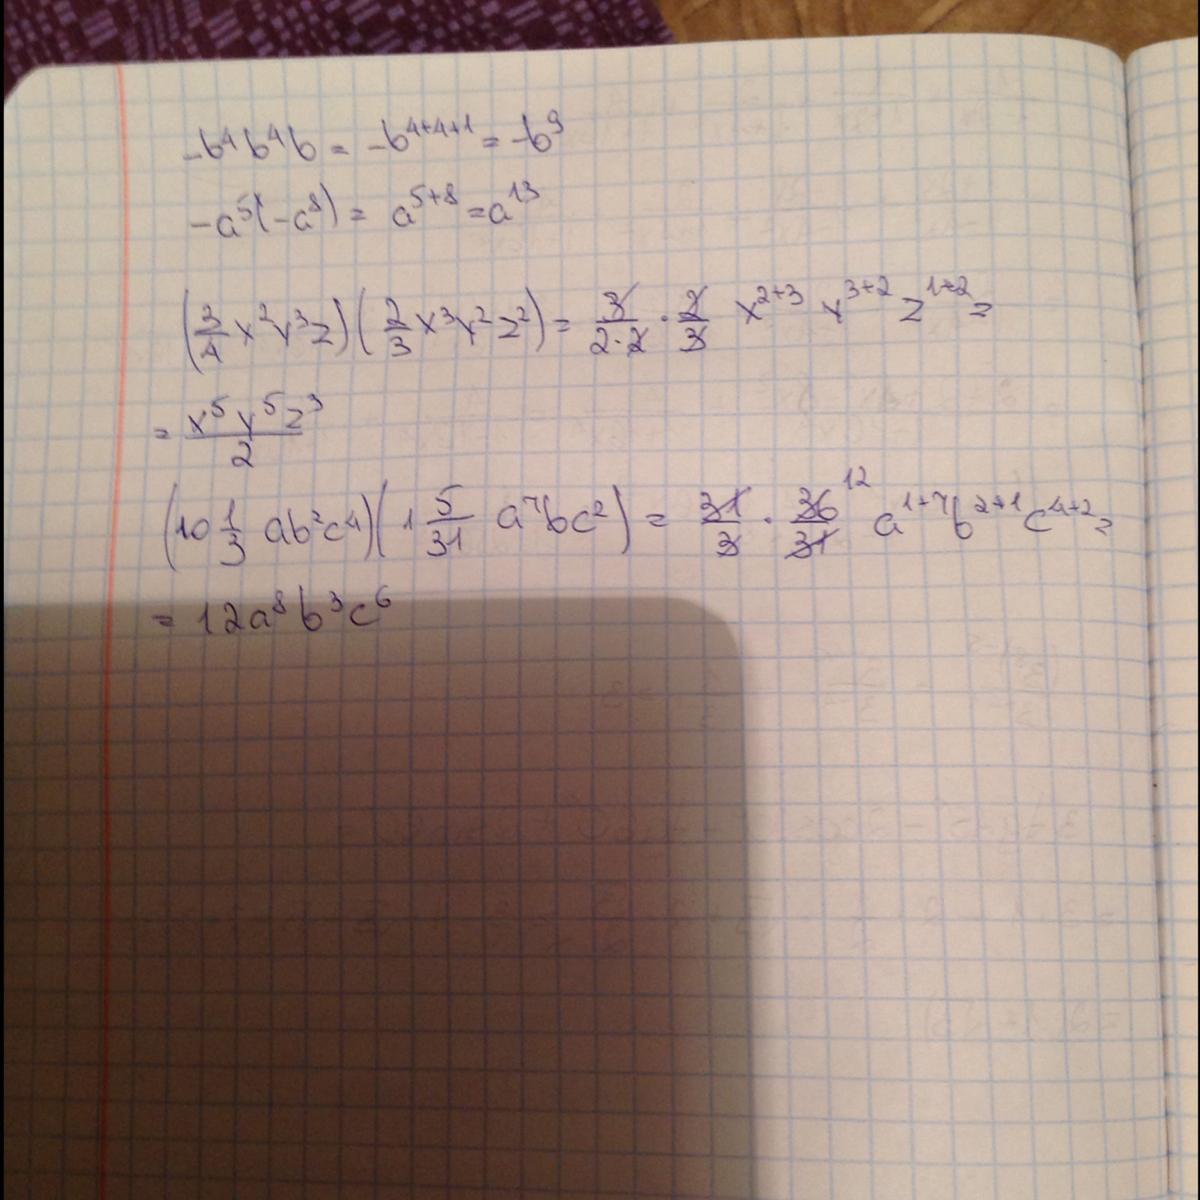 -b⁴b⁴b = -b⁴⁺⁴⁺¹ = -b⁹
-a⁵(-a⁸) = a⁵⁺⁸ = a¹³
(3/4 x²y³z)(2/3 x³y²z²) = 3/(2·2) · 2/3 x²⁺³ y³⁺² z¹⁺² =
= x⁵y⁵z³/2
(10 1/3 ab²c⁴)(1 5/31 a⁷bc²) = 31/3 · 36/31 12 a¹⁺⁷b²⁺¹c⁴⁺² =
= 12a⁸b³c⁶